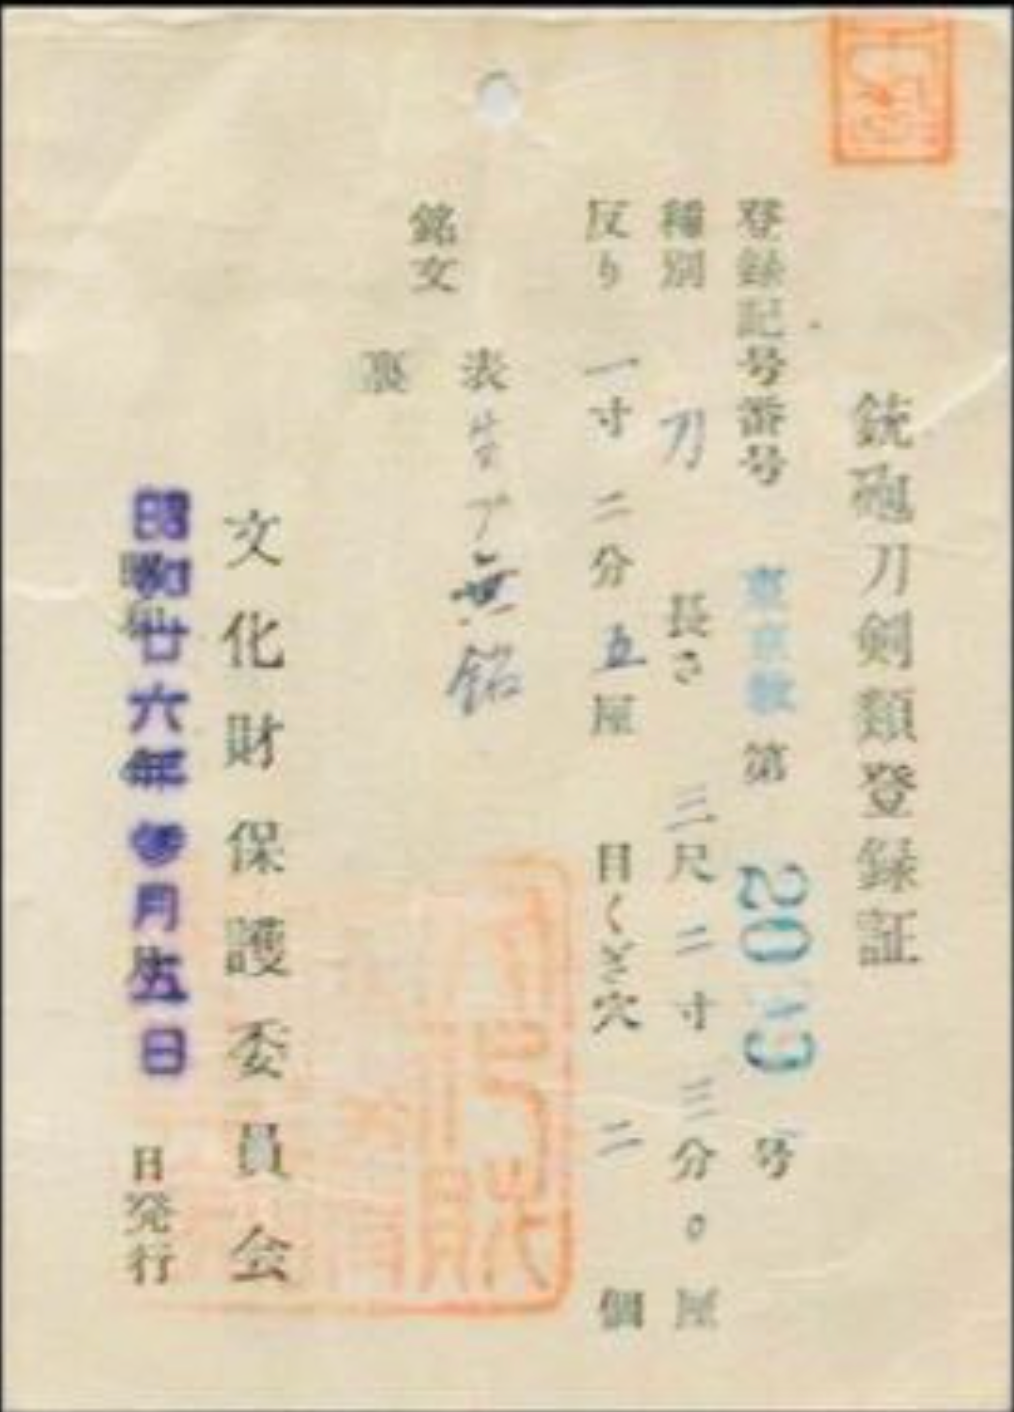 銃砲刀剣類登録証
登録記号番号 東京教 第 20 号
種別 刀 長さ 三尺二寸三分〇厘
反り 一寸二分五厘 目くぎ穴 二個
銘文
表 生ア無銘
裏
文化財保護委員会
昭和廿六年参月五日
日発行